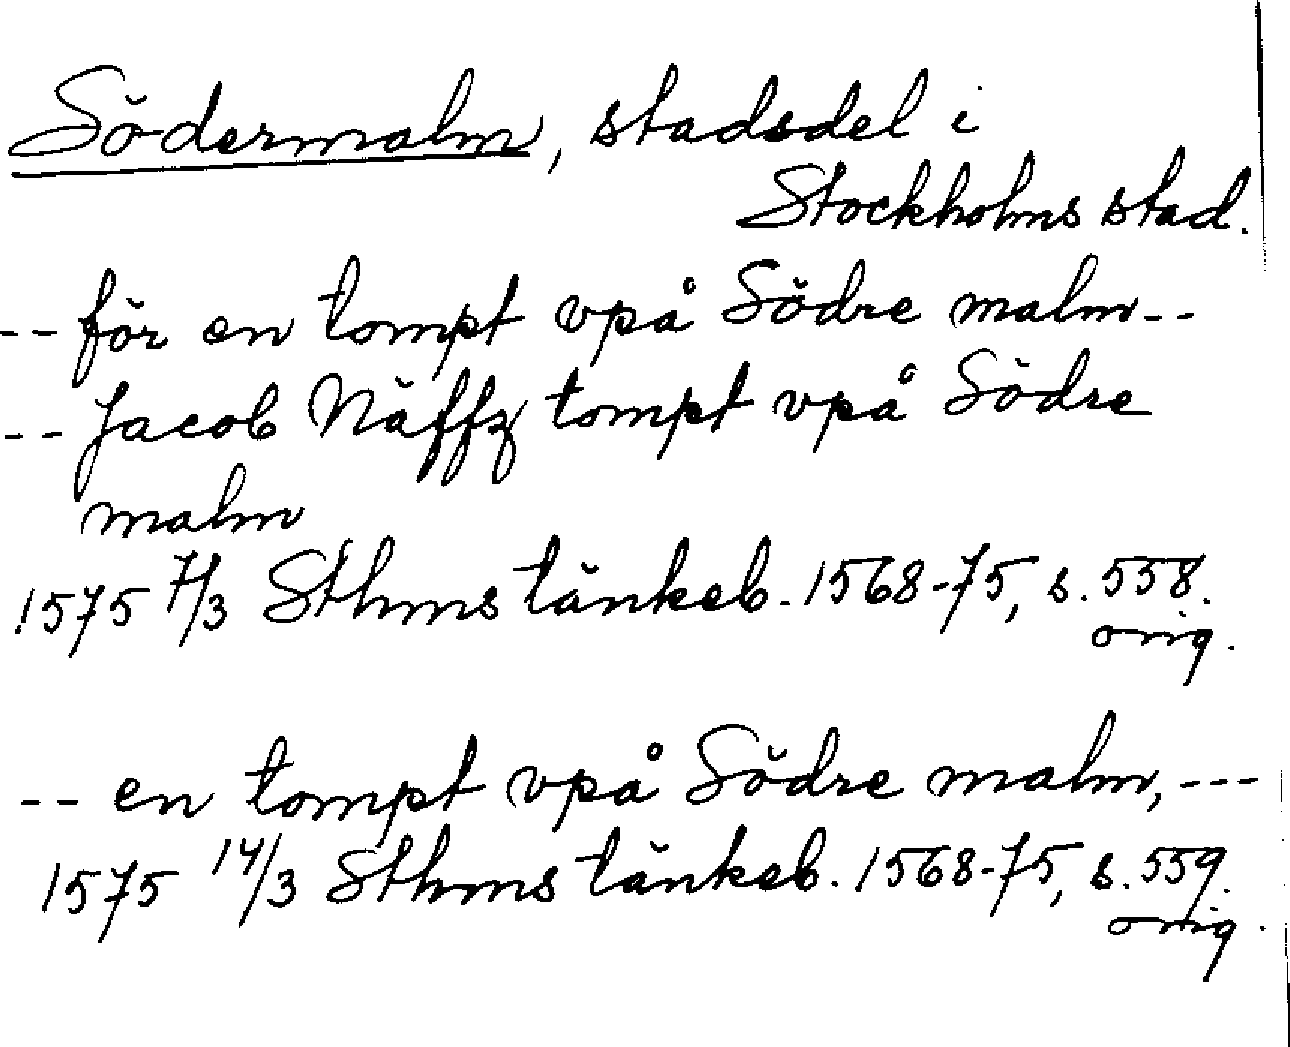 Södermalm, stadsdel i
Stockholms stad.
-- för en tompt vpå Södre malm--
-- Jacob Näffz tompt vpå Södre
malm
1575 7/3 Sthms tänkeb. 1568-75, s. 558.
orig.
-- en tompt vpå Södre malm, ---
1575 14/3 Sthms tänkeb. 1568-75, s. 559.
orig.